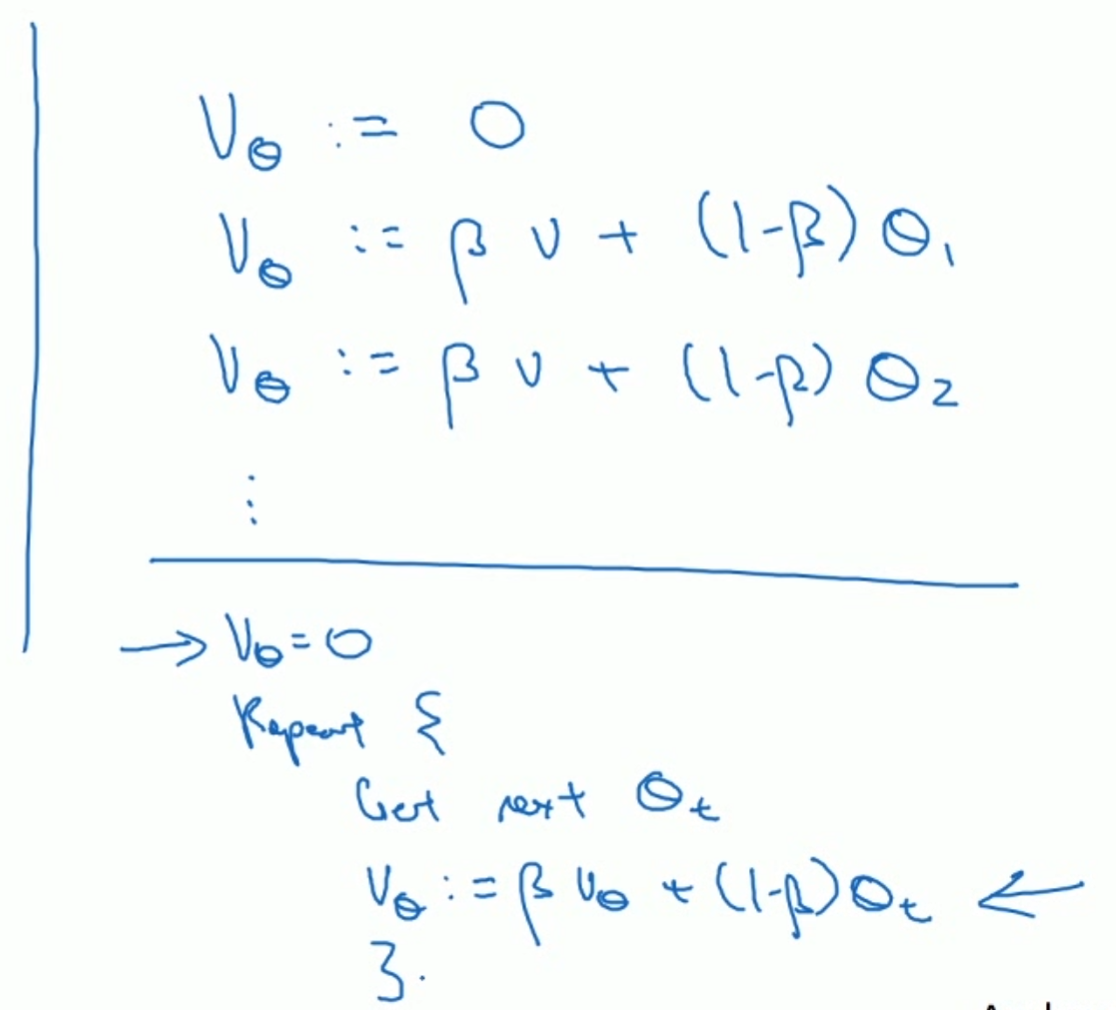 V_θ := 0
V_θ := β v + (1-β) θ_1
V_θ := β v + (1-β) θ_2
⋮
→ V_θ = 0
Repeat {
Get next θ_t
V_θ := β V_θ + (1-β) θ_t ←
}.